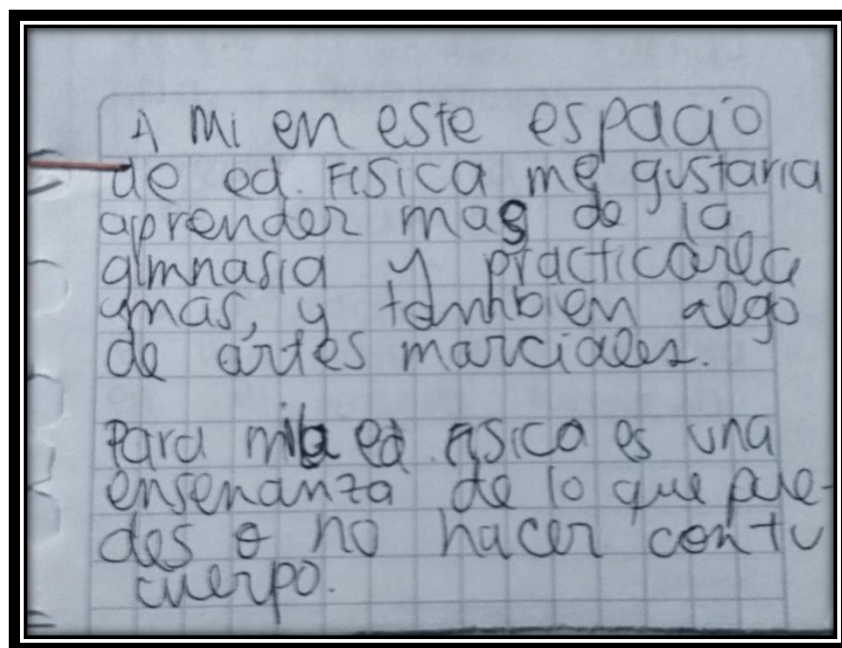 A mi en este espacio
de ed. Fisica me gustaria
aprender mas de la
gimnasia y practicarla
mas, y tambien algo
de artes marciales.
Para mi la ed. fisica es una
ensenanza de lo que pue-
des o no hacer con tu
cuerpo.